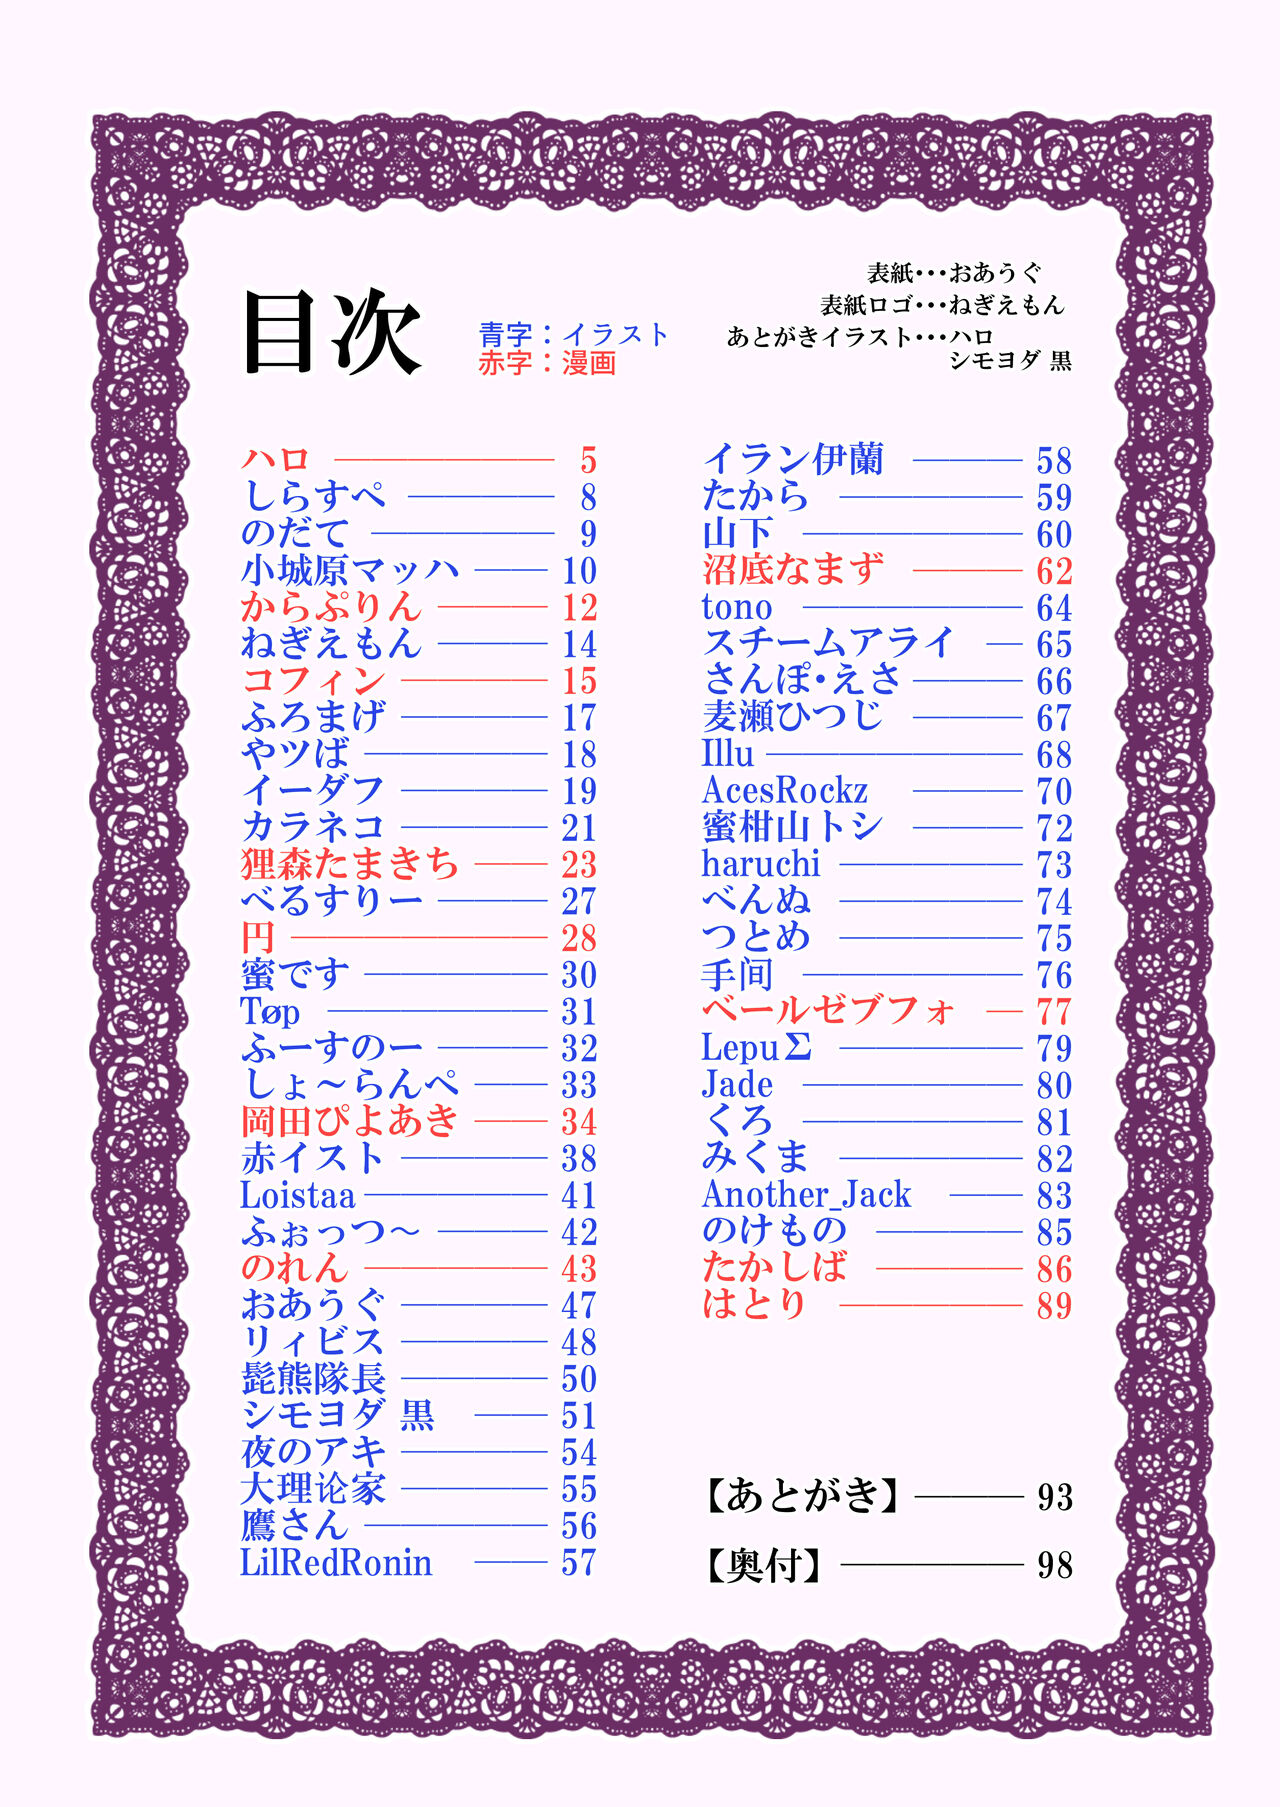 目次
青字：イラスト
赤字：漫画
表紙･･･おあうぐ
表紙ロゴ･･･ねぎえもん
あとがきイラスト･･･ハロ
シモヨダ 黒
ハロ ―――――― 5
しらすぺ ―――― 8
のだて ――――― 9
小城原マッハ ―― 10
からぷりん ――― 12
ねぎえもん ――― 14
コフィン ―――― 15
ふろまげ ―――― 17
やツば ――――― 18
イーダフ ―――― 19
カラネコ ―――― 21
狸森たまきち ―― 23
べるすりー ――― 27
円 ――――――― 28
蜜です ――――― 30
Tøp ―――――― 31
ふーすのー ――― 32
しょ～らんぺ ―― 33
岡田ぴよあき ―― 34
赤イスト ―――― 38
Loistaa ――――― 41
ふぉっつ～ ――― 42
のれん ――――― 43
おあうぐ ―――― 47
リィビス ―――― 48
髭熊隊長 ―――― 50
シモヨダ 黒 ―― 51
夜のアキ ―――― 54
大理论家 ―――― 55
鷹さん ――――― 56
LilRedRonin ―― 57
イラン伊蘭 ――― 58
たから ――――― 59
山下 ―――――― 60
沼底なまず ――― 62
tono ―――――― 64
スチームアライ ― 65
さんぽ・えさ ――― 66
麦瀬ひつじ ――― 67
Illu ――――――― 68
AcesRockz ――― 70
蜜柑山トシ ――― 72
haruchi ――――― 73
べんぬ ――――― 74
つとめ ――――― 75
手间 ―――――― 76
ベールゼブフォ ― 77
LepuΣ ――――― 79
Jade ―――――― 80
くろ ―――――― 81
みくま ――――― 82
Another_Jack ―― 83
のけもの ―――― 85
たかしば ―――― 86
はとり ――――― 89
【あとがき】 ――― 93
【奥付】 ――――― 98